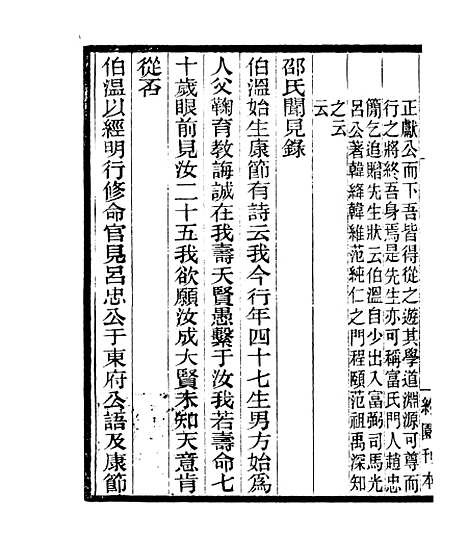 正獻公而下吾皆得從之遊其學道淵源可尊而
行之將終吾身焉是先生亦可稱富氏門人趙忠
簡乞追贈先生狀云伯溫自少出入富弼司馬光
呂公著韓絳韓維范純仁之門程頤范祖禹深知
之云
云
邵氏聞見錄
伯溫始生康節有詩云我今行年四十七生男方始爲
人父鞠育教誨誠在我壽夭賢愚繫于汝我若壽命七
十歲眼前見汝二十五我欲願汝成大賢未知天意肯
從否
伯溫以經明行修命官見呂忠公于東府公語及康節
刊本